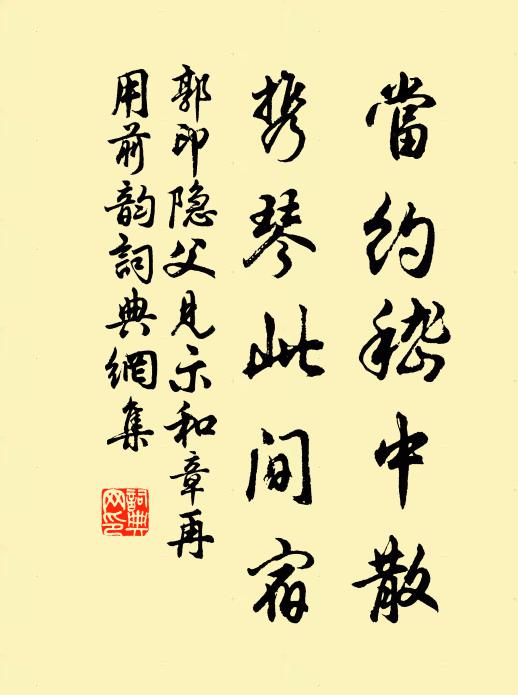 當約嵇中散
携琴此间宿
郭印隐父见示和章再
用前韵詞典網集
詞典网印